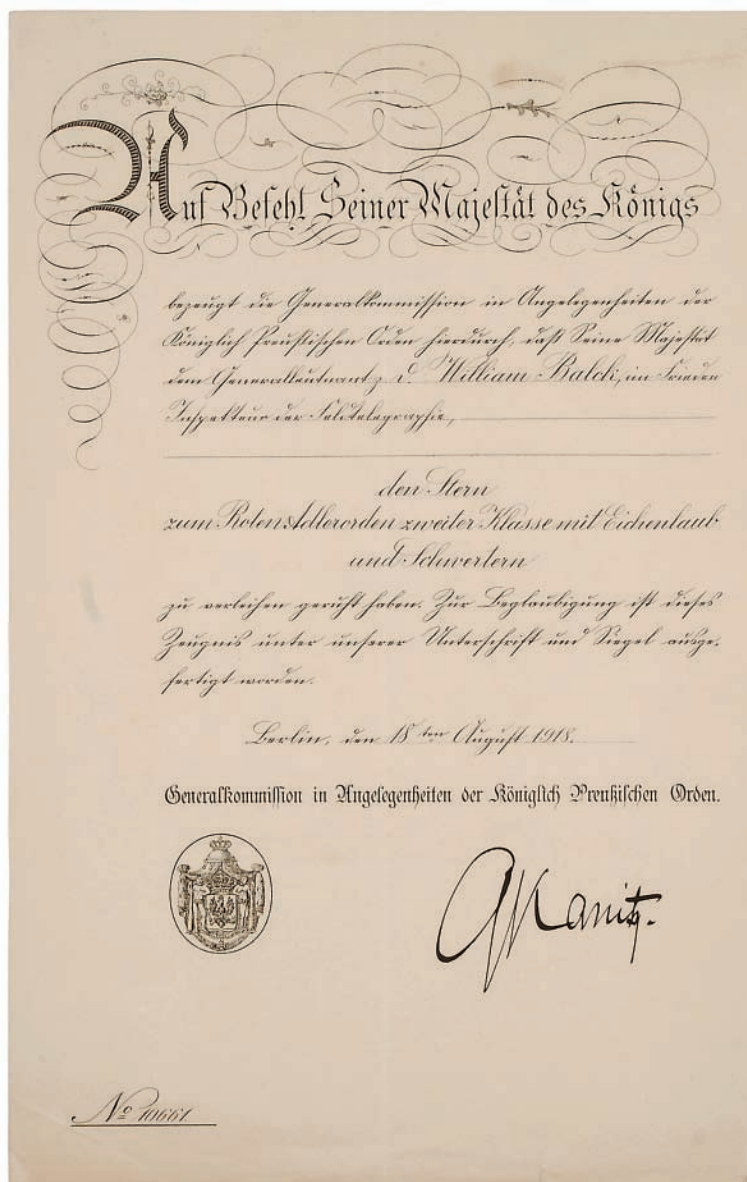 Auf Befehl Seiner Majestät des Königs
bezeugt die Generalkommission in Angelegenheiten der
Königlich Preußischen Orden hierdurch, daß Seine Majestät
dem Generalleutnant z. D. William Balck, im Frieden
Inspekteur der Feldtelegraphie,
den Stern
zum Roten Adlerorden zweiter Klasse mit Eichenlaub
und Schwertern
zu verleihen geruht haben. Zur Beglaubigung ist dieses
Zeugnis unter unserer Unterschrift und Siegel ausge-
fertigt worden.
Berlin, den 18ten August 1918.
Generalkommission in Angelegenheiten der Königlich Preußischen Orden.
GKanitz.
No